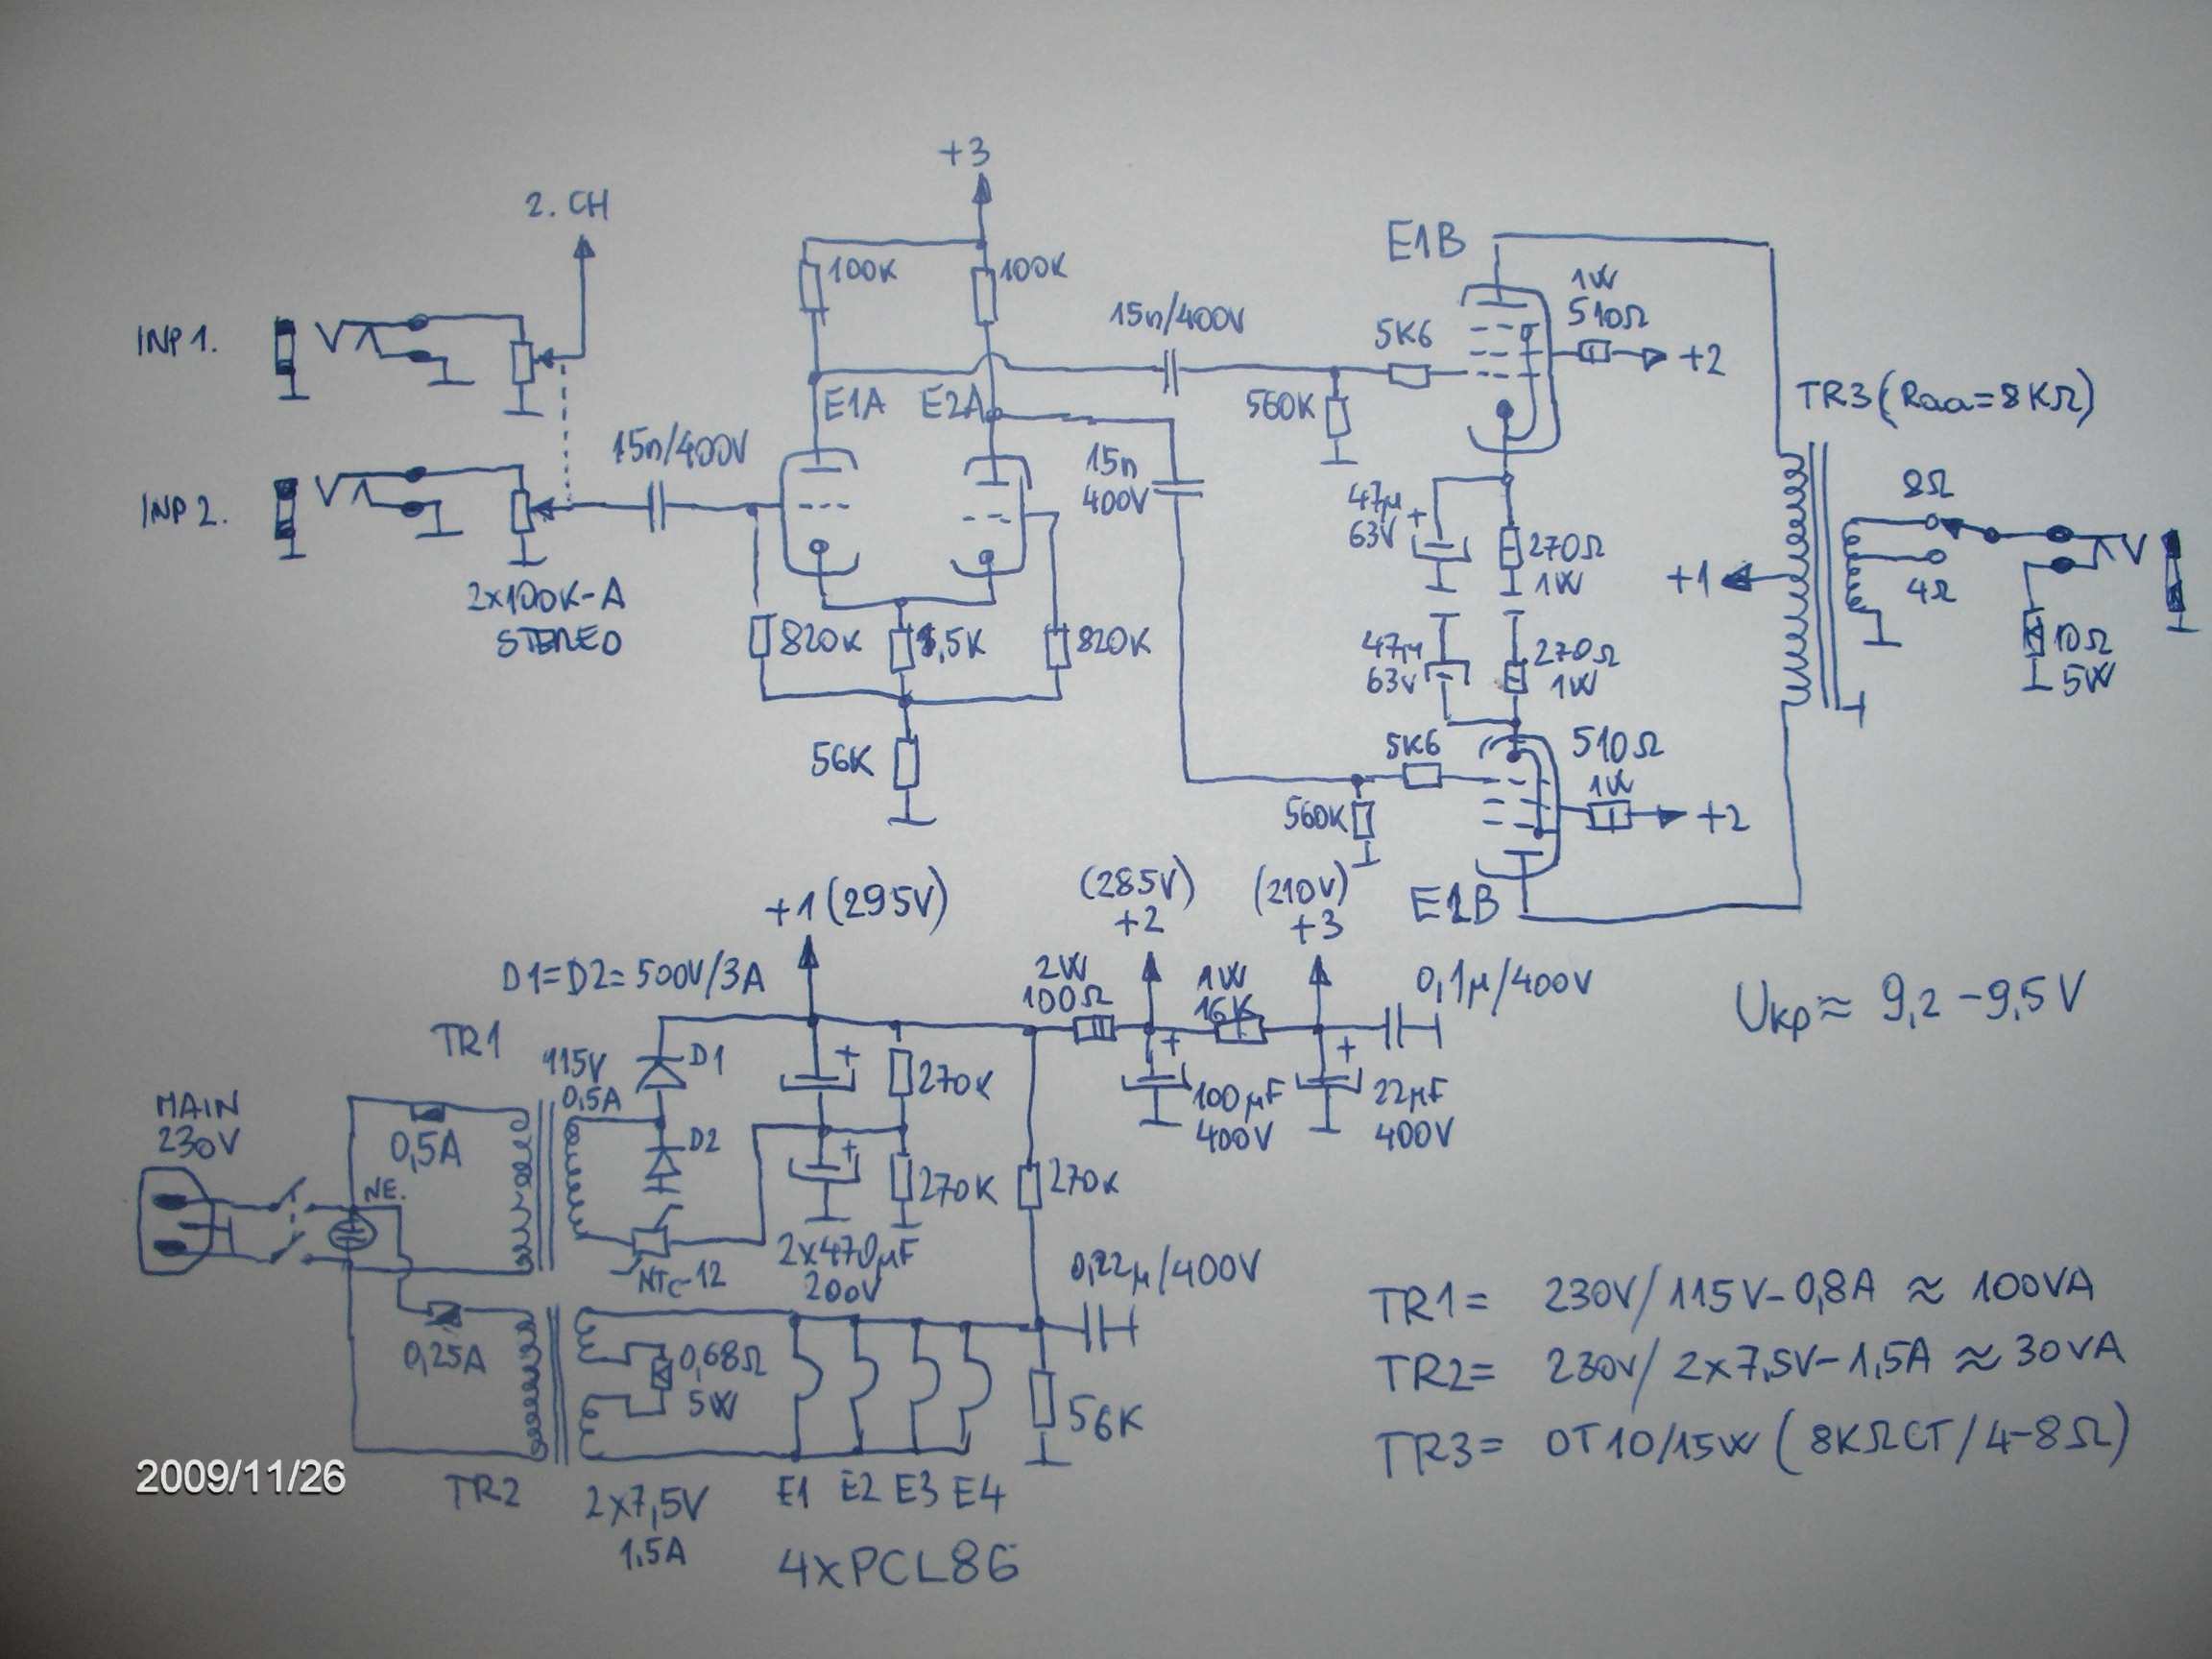 +3
2. CH
E1B
1W
510Ω
100K
100K
15n/400V
5K6
+2
INP1.
E1A
E2A
560K
TR3(Raa=8KΩ)
15n/400V
15n
400V
8Ω
INP2.
47μ
63V
+
270Ω
1W
+1
4Ω
2x100K-A
STEREO
820K
,5K
820K
47μ
63V
270Ω
1W
10Ω
5W
56K
5K6
510Ω
1W
560K
+2
+1(295V)
(285V)
+2
(210V)
+3
D1=D2=500V/3A
2W
100Ω
1W
16K
0,1μ/400V
Uкр≈ 9,2-9,5V
TR1
115V
0,5A
D1
+
270K
+
100μF
400V
+
22μF
400V
MAIN
230V
0,5A
D2
+
NE.
270K
270K
NTC-12
2x470μF
200V
0,22μ/400V
TR1= 230V/115V-0,8A ≈ 100VA
0,25A
0,68Ω
5W
TR2= 230V/2x7,5V-1,5A ≈ 30VA
56K
TR3= OT10/15W (8KΩCT/4-8Ω)
2009/11/26
TR2
2x7,5V
1,5A
E1 E2 E3 E4
4xPCL86